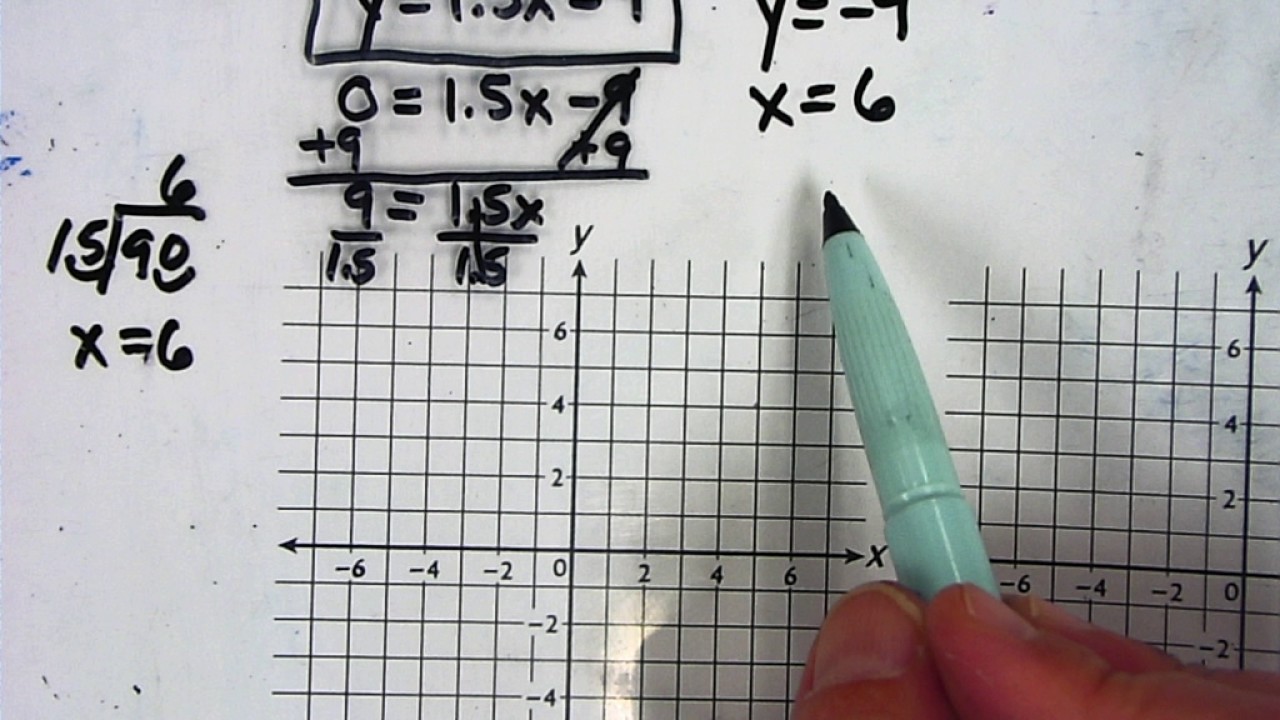 y = 1.5x - 9
y = -9
0 = 1.5x - 9
x = 6
+9 +9
6
9 = 1.5x
15 90
1.5 1.5
x = 6
y
y
6
6
4
4
2
2
x
-6 -4 -2 0 2 4 6
-6 -4 -2 0
-2
-2
-4